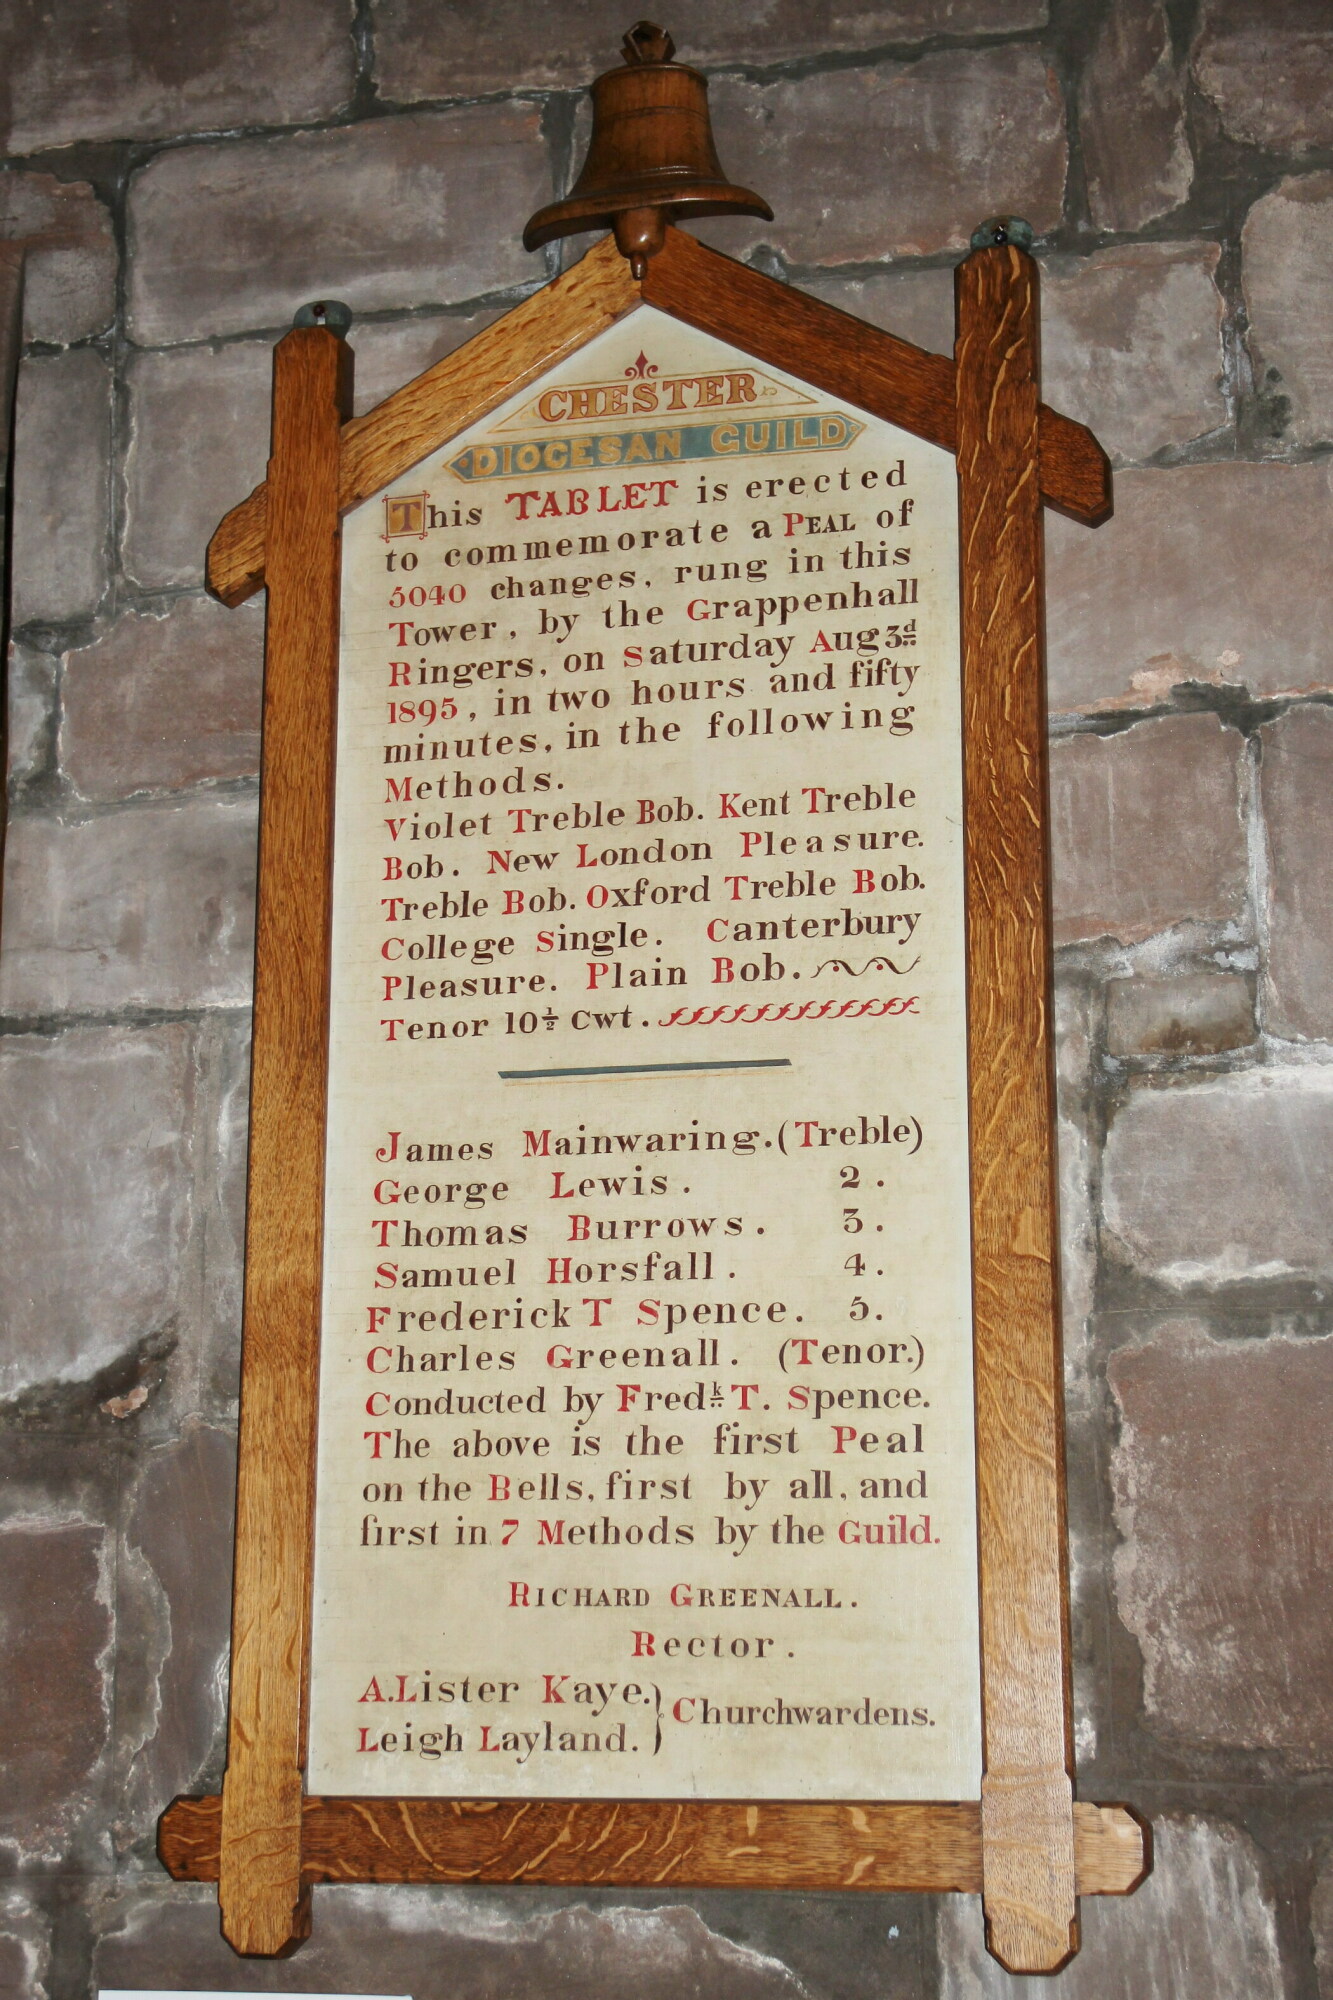 CHESTER
DIOCESAN GUILD
This TABLET is erected
to commemorate a PEAL of
5040 changes, rung in this
Tower, by the Grappenhall
Ringers, on Saturday Aug 3d
1895, in two hours and fifty
minutes, in the following
Methods.
Violet Treble Bob. Kent Treble
Bob. New London Pleasure.
Treble Bob. Oxford Treble Bob.
College Single. Canterbury
Pleasure. Plain Bob.
Tenor 10½ Cwt.
James Mainwaring. (Treble)
George Lewis. 2.
Thomas Burrows. 3.
Samuel Horsfall. 4.
Frederick T Spence. 5.
Charles Greenall. (Tenor.)
Conducted by Fredk T. Spence.
The above is the first Peal
on the Bells, first by all, and
first in 7 Methods by the Guild.
RICHARD GREENALL.
Rector.
A. Lister Kaye.
Leigh Layland. } Churchwardens.